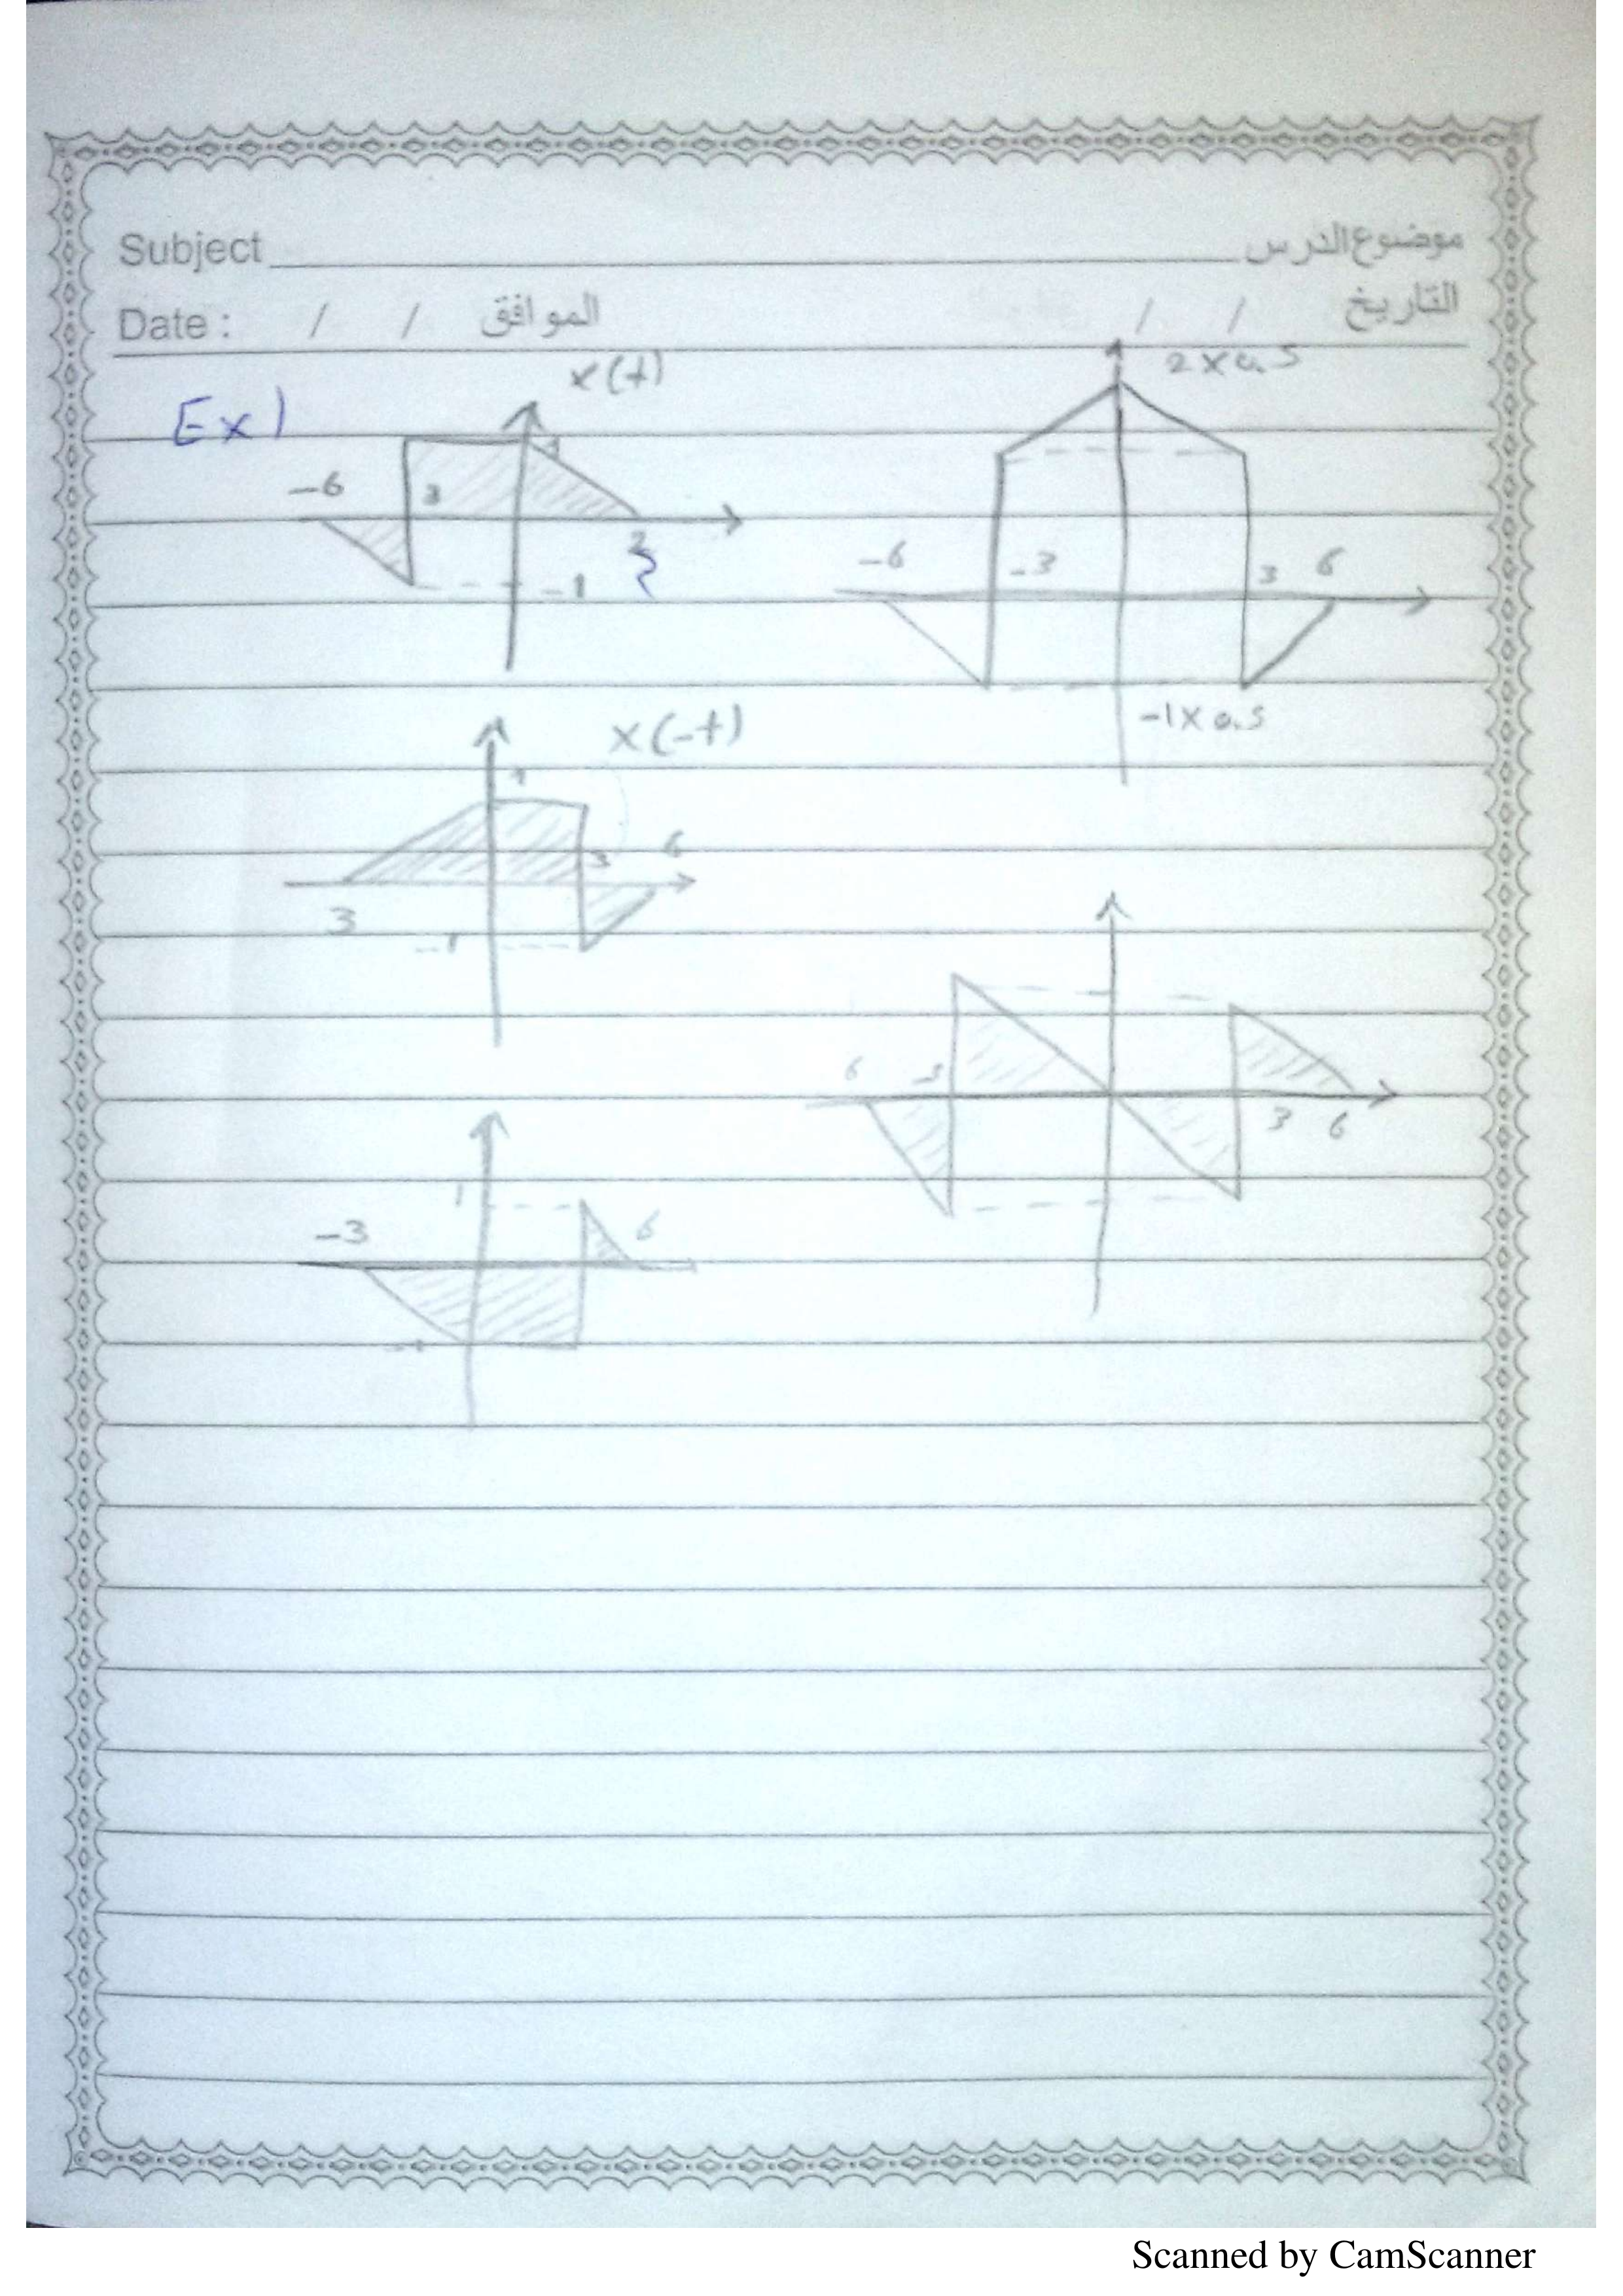 Subject موضوع الدرس
Date : / / الموافق / / التاريخ
Ex1
x(t)
1
-6
3
3
-1
2 x 0.5
-6
-3
3
6
-1 x 0.5
x(-t)
1
3
6
3
-1
6
-3
3
6
1
-3
6
-1
Scanned by CamScanner